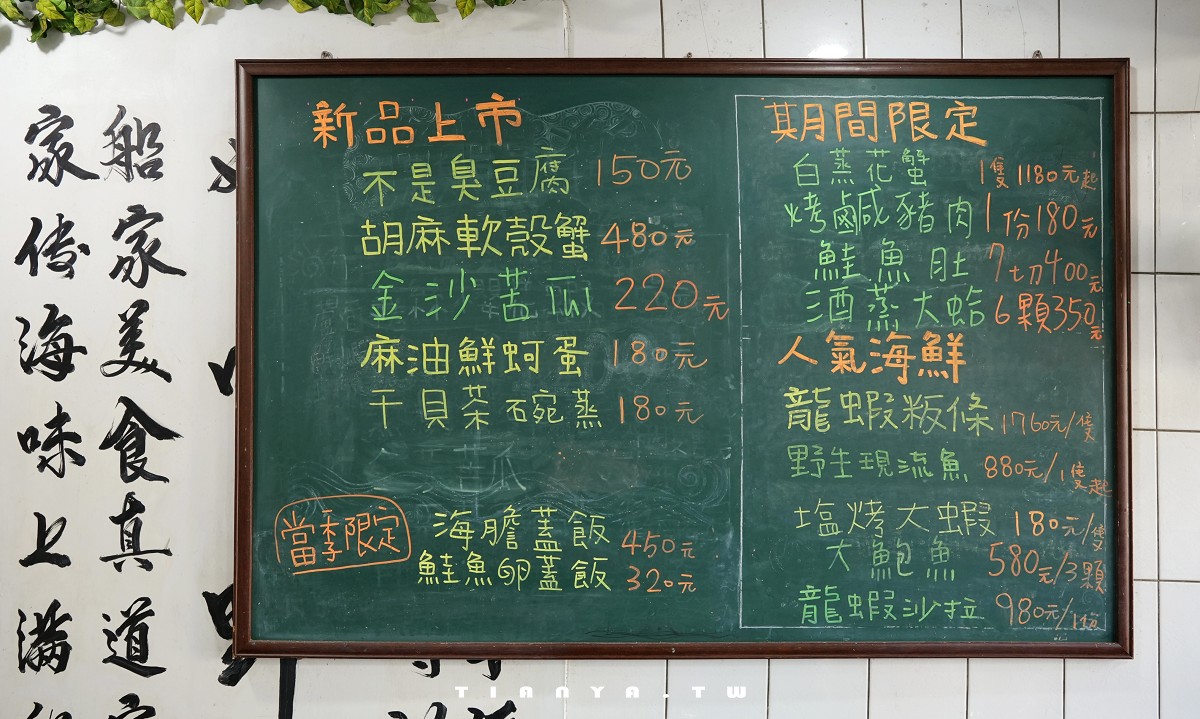 船家美食真道
家傳海味上滿
新品上市
不是臭豆腐 150元
胡麻軟殼蟹 480元
金沙苦瓜 220元
麻油鮮蚵蛋 180元
干貝茶碗蒸 180元
當季限定
海膽蓋飯 450元
鮭魚卵蓋飯 320元
期間限定
白蒸花蟹 1隻1180元起
烤鹹豬肉 1份180元
鮭魚肚 7切400元
酒蒸大蛤 6顆350元
人氣海鮮
龍蝦粄條 1760元/隻
野生現流魚 880元/1隻起
塩烤大蝦 180元/隻
大鮑魚 580元/3顆
龍蝦沙拉 980元/1隻
TIANYA.TW